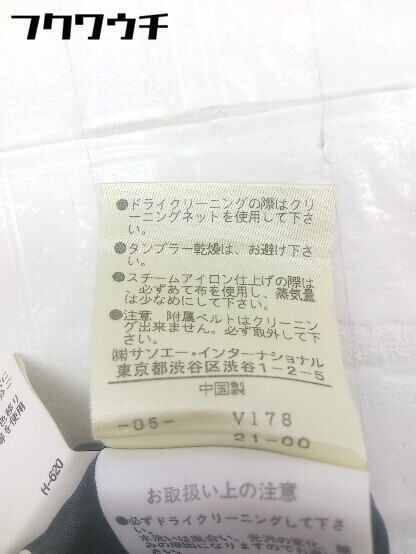 フクワウチ
●ドライクリーニングの際はクリ
ーニングネットを使用して下さ
い。
●タンブラー乾燥は、お避け下さ
い。
●スチームアイロン仕上げの際は
、必ずあて布を使用し、蒸気量
は少なめにして下さい。
●注意 附属ベルトはクリーニン
グ出来ません。必ず取外して下
さい。
㈱サンエー・インターナショナル
東京都渋谷区渋谷1-2-5
中国製
-05- V178
21-00
H-620
お取扱い上の注意
●必ずドライクリーニングして下さ
い。
水洗いは風合い、光沢の変化、縮
みの原因になりますのでお